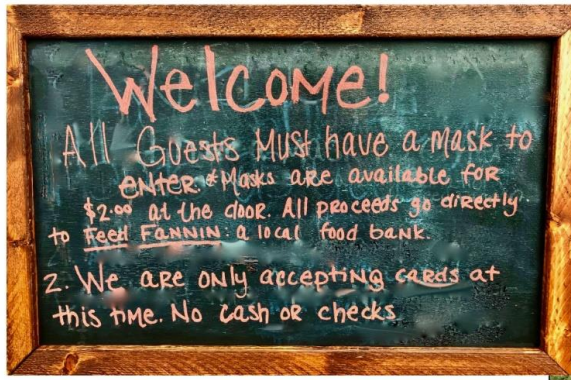 Welcome!
All Guests Must have a mask to
enter. *Masks are available for
$2.00 at the door. All proceeds go directly
to Feed Fannin: a local food bank.
2. We are only accepting cards at
this time. No cash or checks